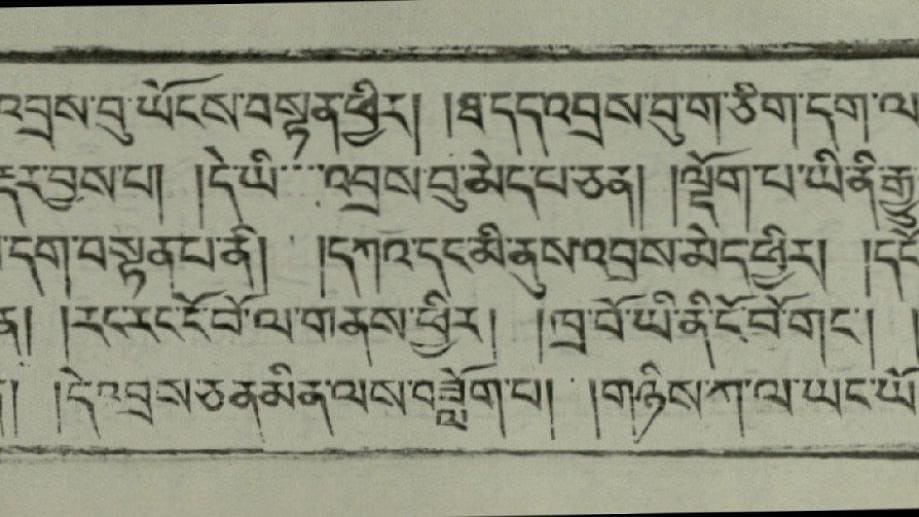 འབྲས་བུ་ཡོངས་བསྟན་ཕྱིར། །ཐ་དད་འབྲས་བུ་གཅིག་དག་ལ
དར་བྱས་པ། །དེ་ཡི་འབྲས་བུ་མེད་པ་ཅན། །ལྡོག་པ་ཡི་ནི
དག་བསྟན་པ་ནི། །དཀའ་དང་མི་ནུས་འབྲས་མེད་ཕྱིར།
ན། །རང་རང་ངོ་བོ་ལ་གནས་ཕྱིར། །ཁྲ་བོ་ཡི་ནི་ངོ་བོ་གང་།
།དེ་འབྲས་ཅན་མིན་ལས་བཟློག་པ། །གཉིས་ཀ་ལ་ཡང་ཡོ